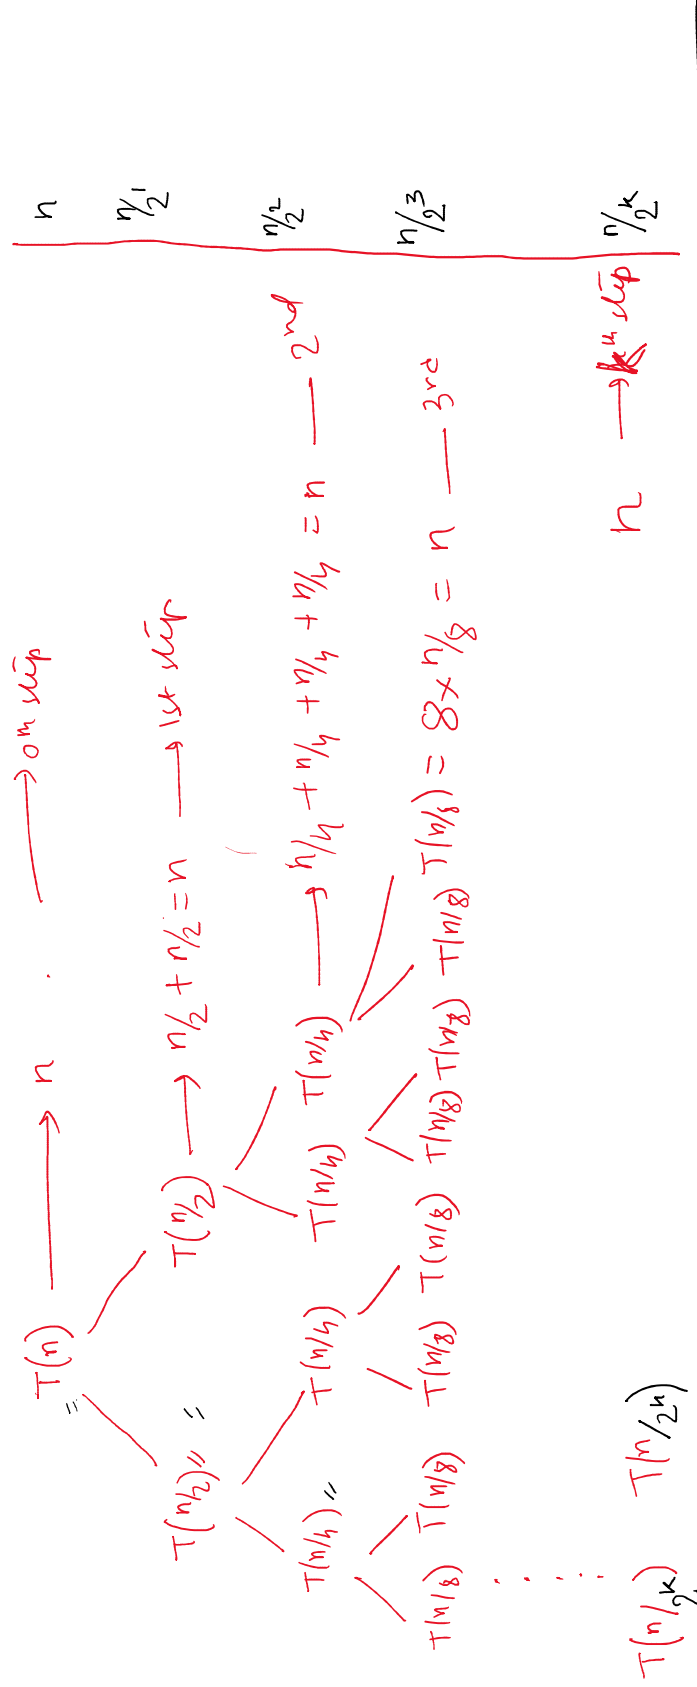 T(n) → n . → 0th step n
T(n/2) T(n/2) → n/2 + n/2 = n → 1st step n/2^1
T(n/4) T(n/4) T(n/4) T(n/4) → n/4 + n/4 + n/4 + n/4 = n — 2nd n/2^2
T(n/8) T(n/8) T(n/8) T(n/8) T(n/8) T(n/8) T(n/8) T(n/8) = 8 × n/8 = n — 3rd n/2^3
T(n/2^k) T(n/2^k) n → kth step n/2^k